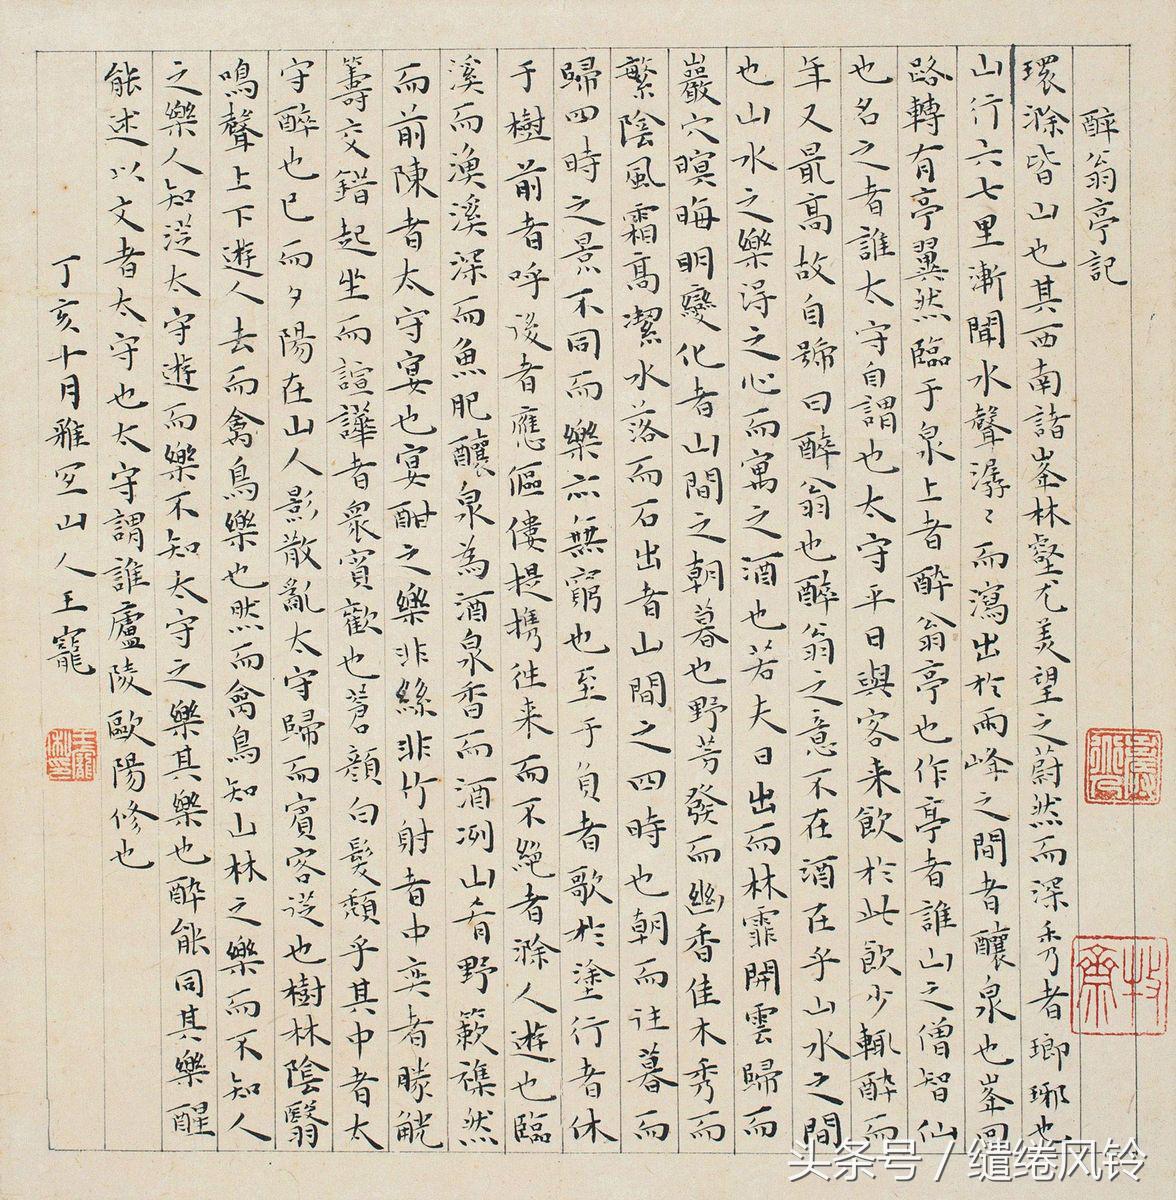 醉翁亭記
環滁皆山也其西南諸峯林壑尤美望之蔚然而深秀者瑯琊也
山行六七里漸聞水聲潺〻而瀉出於兩峰之間者釀泉也峯回
路轉有亭翼然臨于泉上者醉翁亭也作亭者誰山之僧智仙
也名之者誰太守自謂也太守平日與客来飲於此飲少輒醉而
年又最高故自號曰醉翁也醉翁之意不在酒在乎山水之間
也山水之樂得之心而寓之酒也若夫日出而林霏開雲歸而
巖穴暝晦明變化者山間之朝暮也野芳發而幽香佳木秀而
繁陰風霜高潔水落而石出者山間之四時也朝而往暮而
歸四時之景不同而樂亦無窮也至于負者歌於塗行者休
于樹前者呼後者應傴僂提携往来而不絕者滁人遊也臨
溪而漁溪深而魚肥釀泉為酒泉香而酒冽山肴野蔌襍然
而前陳者太守宴也宴酣之樂非絲非竹射者中奕者勝觥
籌交錯起坐而諠譁者衆賓歡也蒼顏白髮頹乎其中者太
守醉也已而夕陽在山人影散亂太守歸而賓客從也樹林陰翳
鳴聲上下遊人去而禽鳥樂也然而禽鳥知山林之樂而不知人
之樂人知從太守遊而樂不知太守之樂其樂也醉能同其樂醒
能述以文者太守也太守謂誰廬陵歐陽修也
丁亥十月雅宜山人王寵
王寵私印
牧齋
头条号 / 缱绻风铃